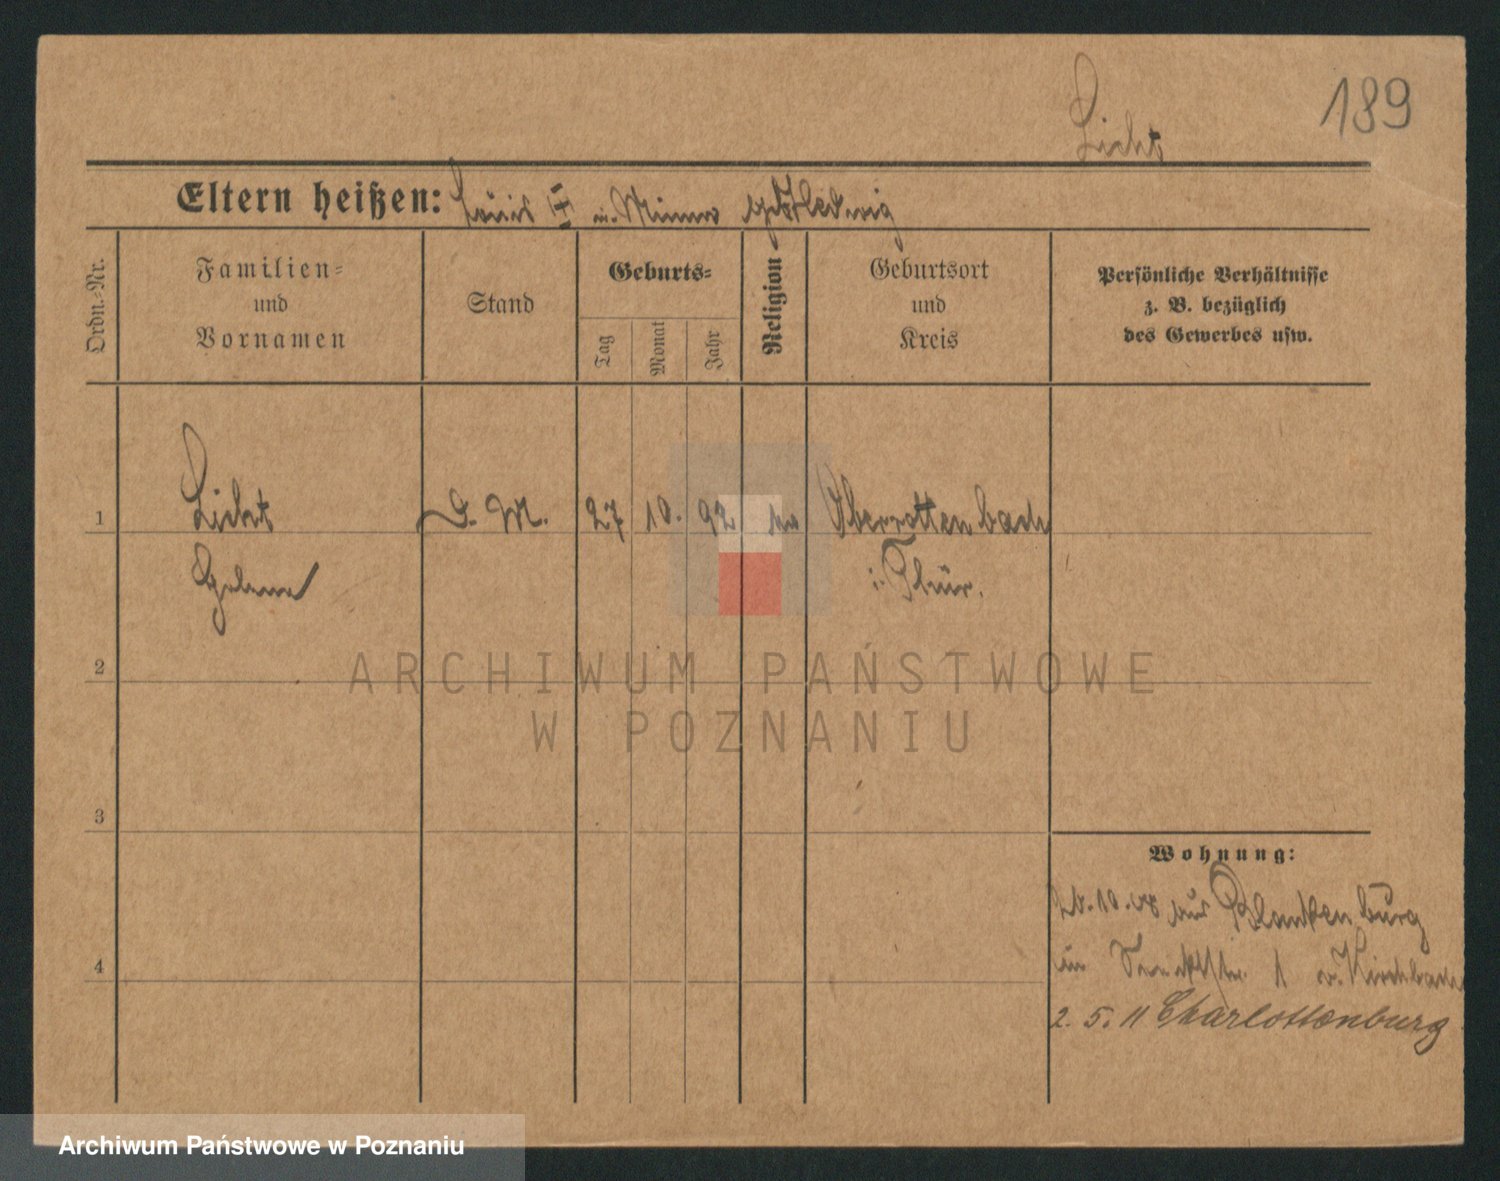 189
Licht
Eltern heißen: Louis ✝ u. Minna geb. Hedwig
Ordn.-Nr.
Familien-
und
Vornamen
Stand
Geburts-
Tag
Monat
Jahr
Religion
Geburtsort
und
Kreis
Persönliche Verhältnisse
z. B. bezüglich
des Gewerbes usw.
1
Licht
D. M.
27
10.
92
Oberrottenbach
i. Thür.
2
ARCHIWUM PAŃSTWOWE
W POZNANIU
3
Wohnung:
10. aus Blankenburg
1 v. Kirchbach
4
2. 5. 11 Charlottenburg
Archiwum Państwowe w Poznaniu